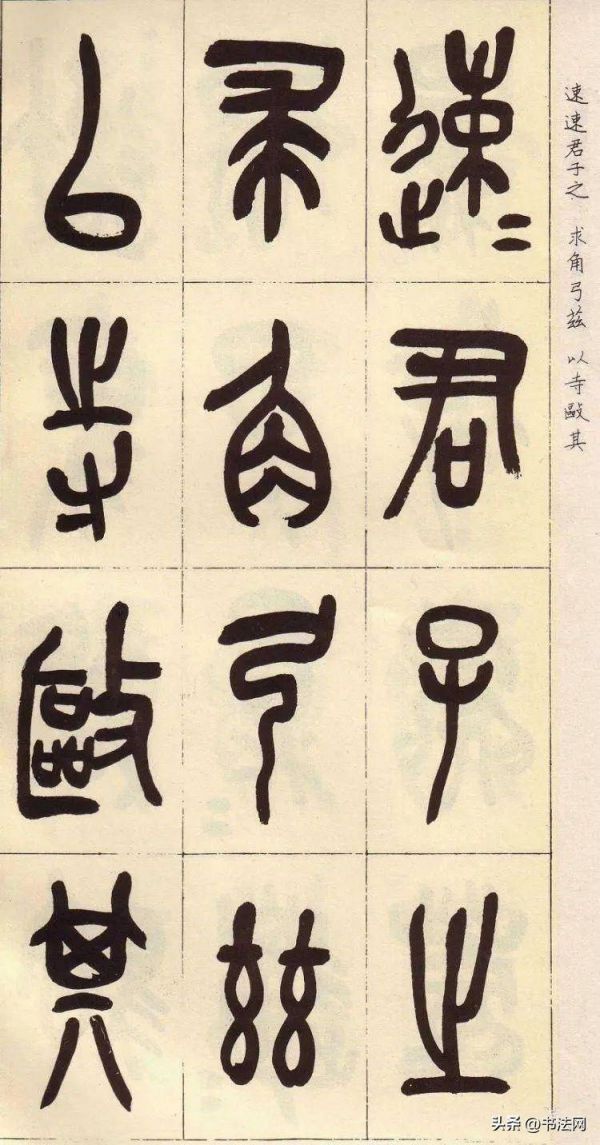 速速君子之 求角弓兹 以寺敺其
速〻君子之
求角弓兹
以寺敺其
头条 @书法网